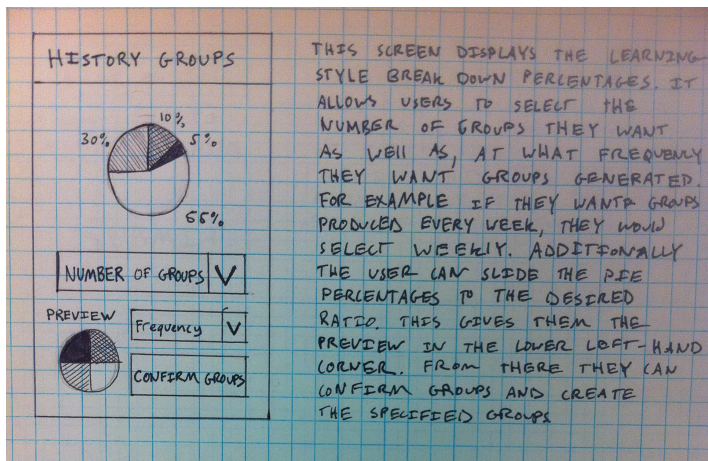 HISTORY GROUPS
10%
30%
5%
55%
NUMBER OF GROUPS V
PREVIEW
Frequency V
CONFIRM GROUPS
THIS SCREEN DISPLAYS THE LEARNING
STYLE BREAK DOWN PERCENTAGES. IT
ALLOWS USERS TO SELECT THE
NUMBER OF GROUPS THEY WANT
AS WELL AS, AT WHAT FREQUENCY
THEY WANT GROUPS GENERATED.
FOR EXAMPLE IF THEY WANTA GROUPS
PRODUCED EVERY WEEK, THEY WOULD
SELECT WEEKLY. ADDITIONALLY
THE USER CAN SLIDE THE PIE
PERCENTAGES TO THE DESIRED
RATIO. THIS GIVES THEM THE
PREVIEW IN THE LOWER LEFT-HAND
CORNER. FROM THERE THEY CAN
CONFIRM GROUPS AND CREATE
THE SPECIFIED GROUPS